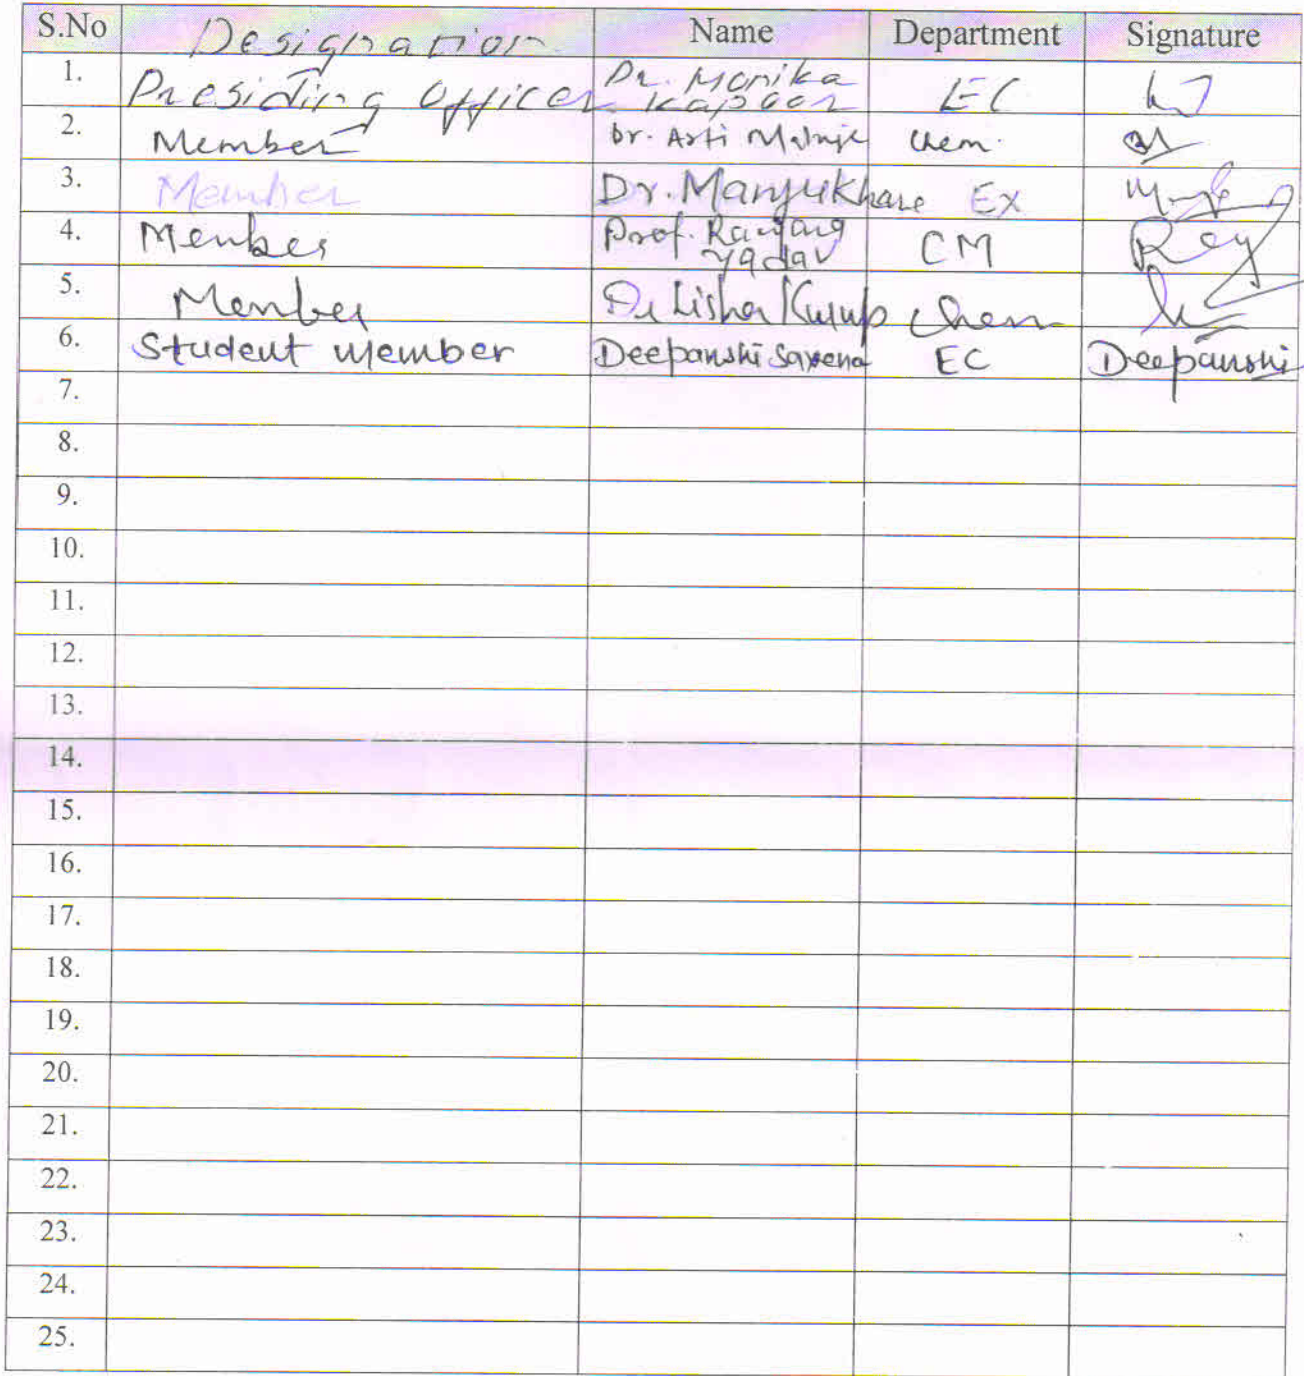 S.No Designation Name Department Signature
1. Presiding Officer Dr. Monika Kapoor EC
2. Member Dr. Arti Chem.
3. Member Dr. Manju Khare Ex
4. Member Prof. Yadav CM
5. Member Dr Lisha Kurup Chem
6. Student member Deepanshi Saxena EC Deepanshi
7.
8.
9.
10.
11.
12.
13.
14.
15.
16.
17.
18.
19.
20.
21.
22.
23.
24.
25.